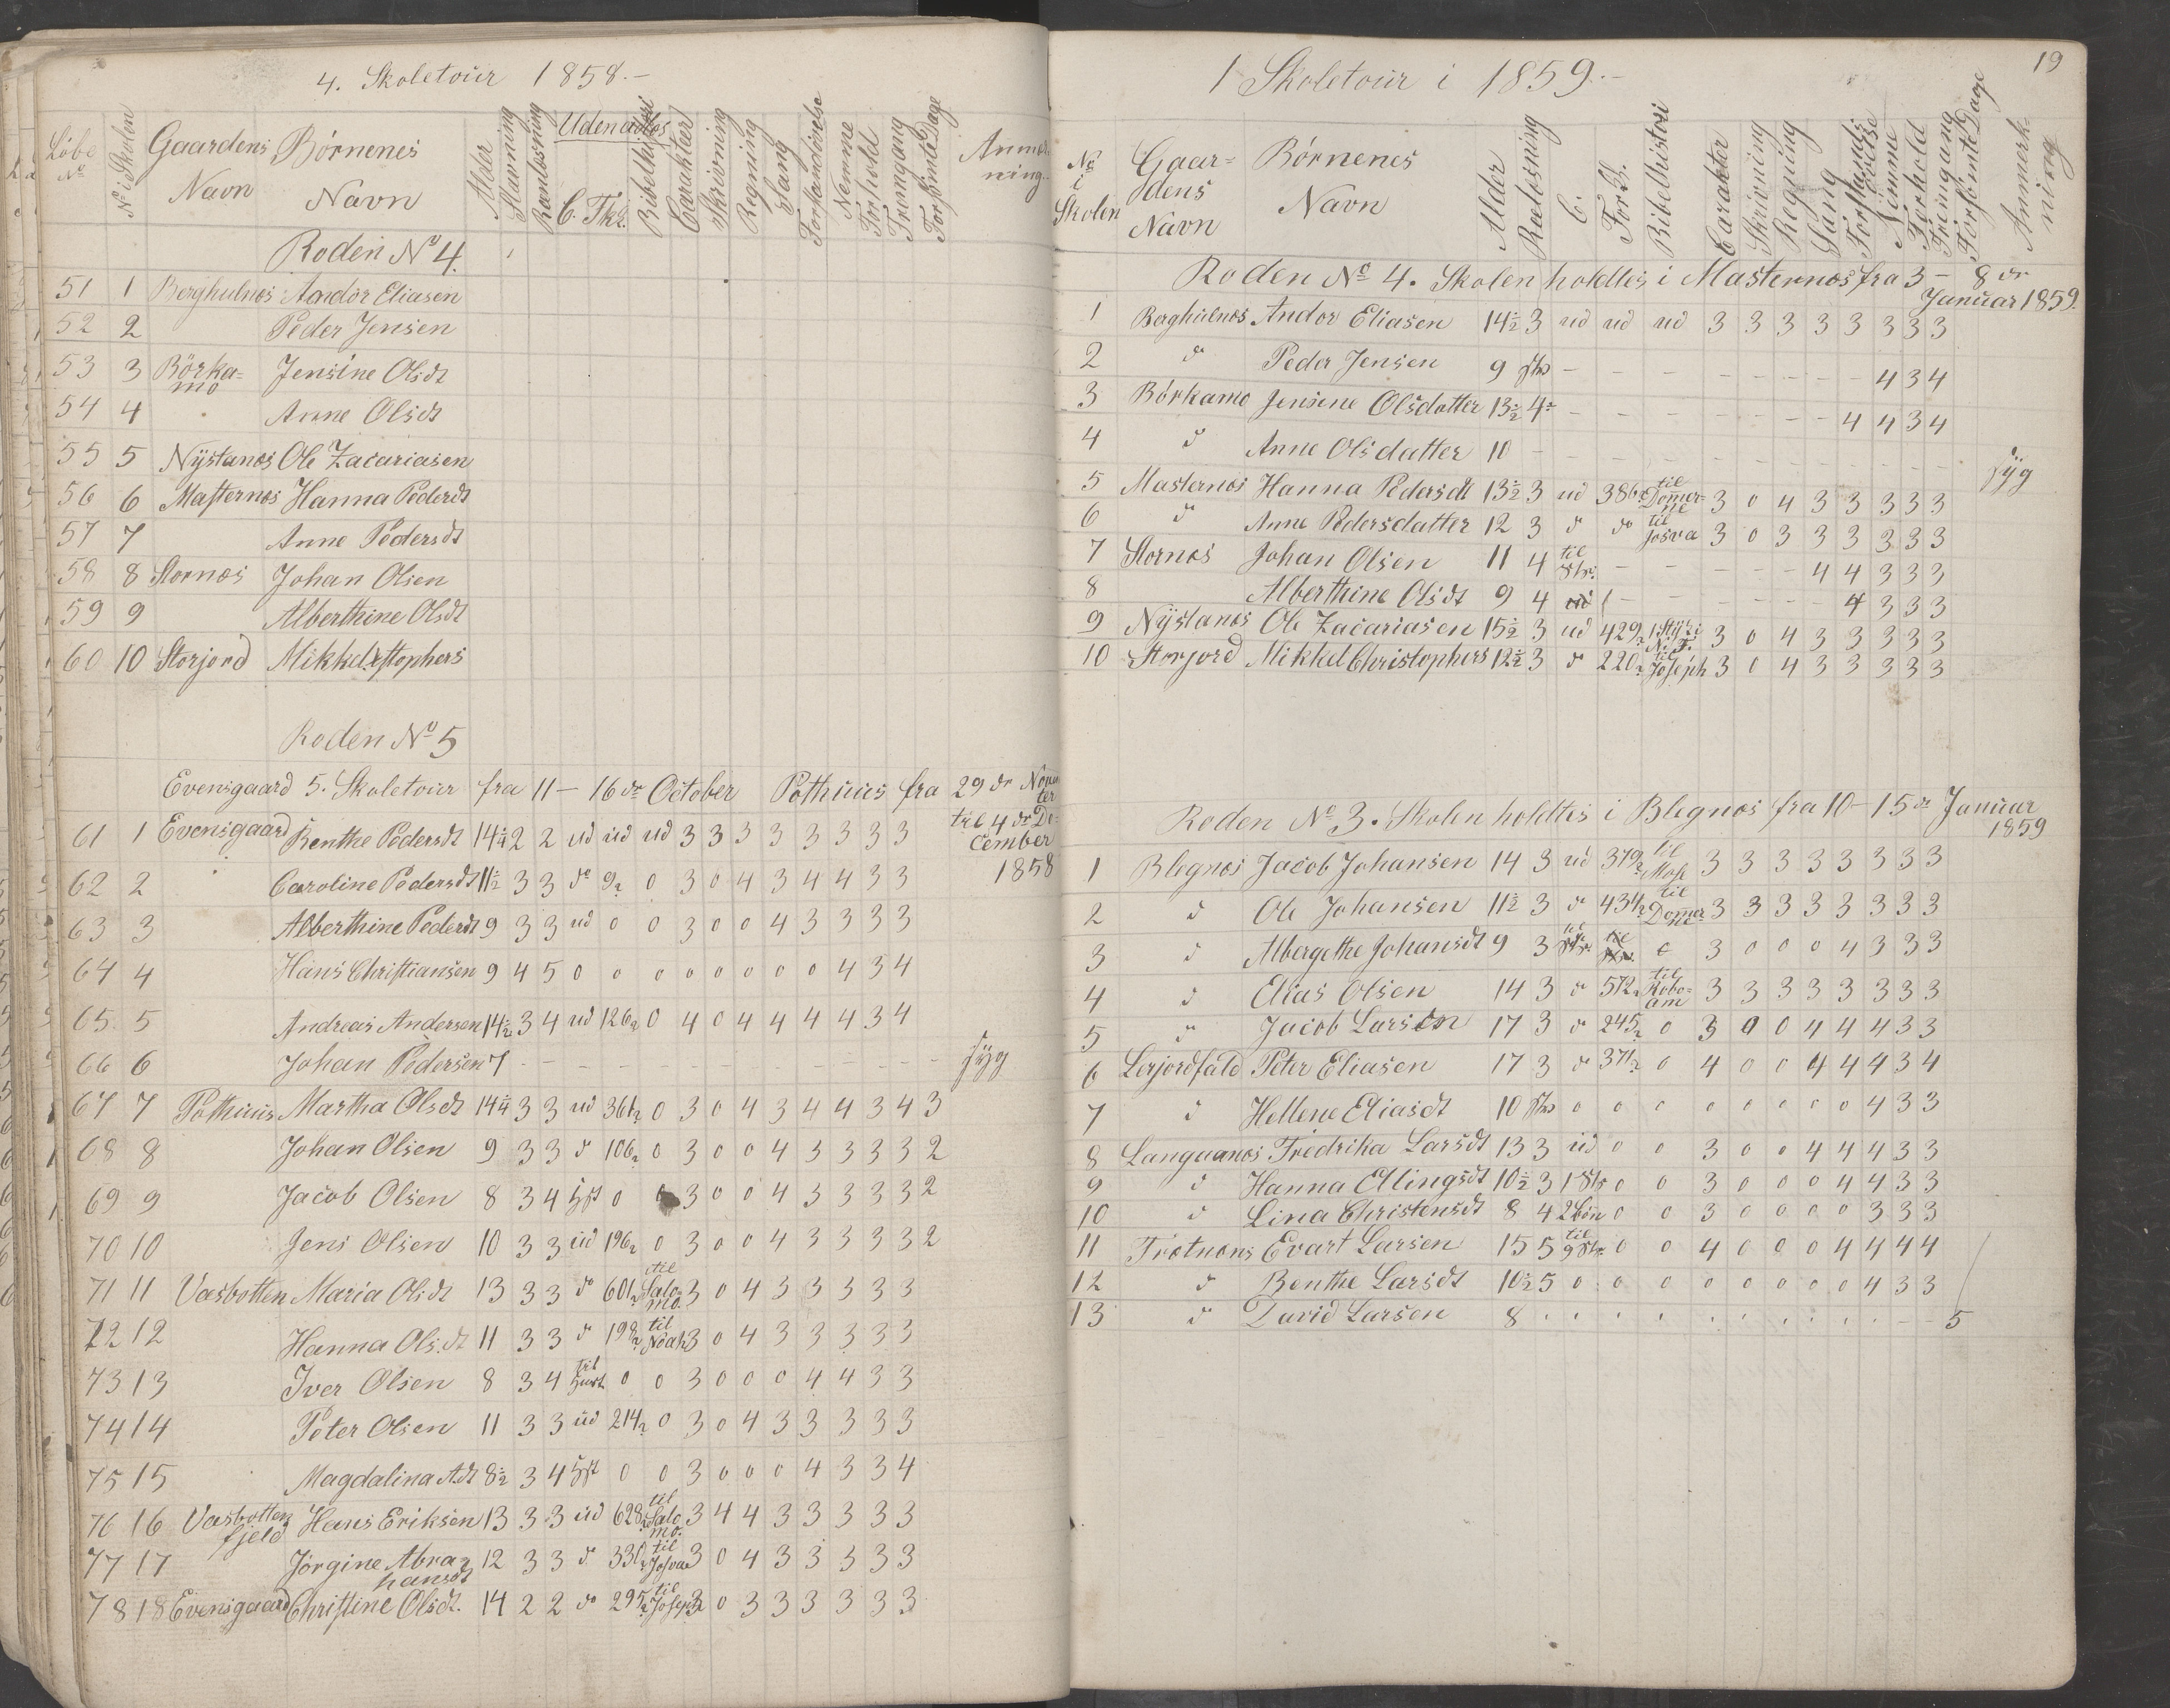 4. Skoletour 1858.-
Løbe No
No i Skolen
Gaardens Navn
Børnenes Navn
Alder
Stavning
Udenadlæs
C.
Carakter
Skrivning
Regning
Sang
Forstandøvelse
Nemme
Forhold
Fremgang
Forsømte Dage
Roden No 4.
51 1 Berghulnes Andor Eliasen
52 2 Peder Jensen
53 3 Börka=mo Jensine Olsdt
54 4 Anne Olsdt
55 5 Nystanes Ole Zacariasen
56 6 Masternes Hanna Pedersdt
57 7 Anne Pedersdt
58 8 Stornes Johan Olsen
59 9 Alberthine Olsdt
60 10 Storjord Mikkel Xstophers
Roden No 5
Evensgaard 5. Skoletour fra 11 - 16 dr October Pothuus fra 29 dr Novemter
til 4 dr De-cember 1858
61 1 Evensgaard Benthe Pedersdt 14¼ 2 2 ud ud ud 3 3 3 3 3 3 3 3
62 2 Caroline Pedersdt 11½ 3 3 do 9 0 3 0 4 3 4 4 3 3
63 3 Alberthine Pedersdt 9 3 3 ud 0 0 3 0 0 4 3 3 3 3
64 4 Hans Christiansen 9 4 5 0 0 0 0 0 0 0 0 4 3 4
65 5 Andreas Andersen 14½ 3 4 ud 126 0 4 0 4 4 4 4 3 4
66 6 Johan Pedersen 7 - - - - - - - - - - - - - syg
67 7 Pothuus Martha Olsdt 14¼ 3 3 ud 361 0 3 0 4 3 4 4 3 4 3
68 8 Johan Olsen 9 3 3 do 106 0 3 0 0 4 3 3 3 3 2
69 9 Jacob Olsen 8 3 4 0 3 0 0 4 3 3 3 3 2
70 10 Jens Olsen 10 3 3 ud 196 0 3 0 0 4 3 3 3 3 2
71 11 Vasbotten Maria Olsdt 13 3 3 do 601 til Salo-mo. 3 0 4 3 3 3 3 3
72 12 Hanna Olsdt 11 3 3 do 198 til Noah 3 0 4 3 3 3 3 3
73 13 Iver Olsen 8 3 4 til 0 0 3 0 0 0 4 4 3 3
74 14 Peter Olsen 11 3 3 ud 214 0 3 0 4 3 3 3 3 3
75 15 Magdalina Adt 8½ 3 4 0 0 3 0 0 0 4 3 3 4
76 16 Vasbotten fjeld Hans Eriksen 13 3 3 ud 628 til Salo mo. 3 4 4 3 3 3 3 3
77 17 Jørgine Abra=hamsdt 12 3 3 do 330 til Josva 3 0 4 3 3 3 3 3
78 18 Evensgaard Christine Olsdt. 14 2 2 do 295 til Joseph 3 0 3 3 3 3 3 3
19
1 Skoletour i 1859.-
No i Skolen
Gaar=dens Navn
Børnenes Navn
Alder
C.
Bibelhistori
Carakter
Skrivning
Regning
Sang
Nemme
Forhold
Fremgang
Forsømte Dage
Anmerk-ning
Roden No 4. Skolen holdtes i Masternes fra 3 - 8 dr
Januar 1859.
1 Berghulnes Andor Eliasen 14½ 3 ud ud ud 3 3 3 3 3 3 3 3
2 do Peder Jensen 9 - - - - - - - - 4 3 4
3 Börkamo Jensine Olsdatter 13½ 4 - - - - - - - 4 4 3 4
4 do Anne Olsdatter 10 - - - - - - - - - - - - syg
5 Masternes Hanna Pedersdt 13½ 3 ud 386 til Domer=ne 3 0 4 3 3 3 3 3
6 do Anne Pedersdatter 12 3 do do til Josva 3 0 3 3 3 3 3 3
7 Stornes Johan Olsen 11 4 til - - - - - 4 4 3 3 3
8 Alberthine Olsdt 9 4 - - - - - - 4 3 3 3
9 Nystanes Ole Zacariasen 15½ 3 ud 429 1 Stÿk i N. T. 3 0 4 3 3 3 3 3
10 Storjord Mikkel Christophers 12½ 3 do 220 til Joseph 3 0 4 3 3 3 3 3
Roden No 3. Skolen holdtes i Blegnes fra 10 - 15 dr Januar
1859
1 Blegnes Jacob Johansen 14 3 ud 379 til Mose 3 3 3 3 3 3 3 3
2 do Ole Johansen 11½ 3 do 434 til Domer ne 3 3 3 3 3 3 3 3
3 do Albergethe Johansdt 9 3 3 0 0 0 4 3 3 3
4 do Elias Olsen 14 3 do 572 til Robo=am 3 3 3 3 3 3 3 3
5 do Jacob Larsen 17 3 do 245 0 3 0 0 4 4 4 3 3
6 Lerjordfald Peter Eliasen 17 3 do 371 0 4 0 0 4 4 4 3 4
7 do Hellene Eliasdt 10 0 0 0 0 0 0 0 0 4 3 3
8 Langaanes Fredrika Larsdt 13 3 ud 0 0 3 0 0 4 4 4 3 3
9 do Hanna Ellingsdt 10½ 3 1 Str 0 0 3 0 0 0 4 4 3 3
10 do Lina Christensdt 8 4 2 Bön 0 0 3 0 0 0 0 3 3 3
11 Evart Larsen 15 5 til 9 Str. 0 0 4 0 0 0 4 4 4 4
12 do Benthe Larsdt 10½ 5 0 0 0 0 0 0 0 0 4 3 3
13 do David Larsen 8 - - 5